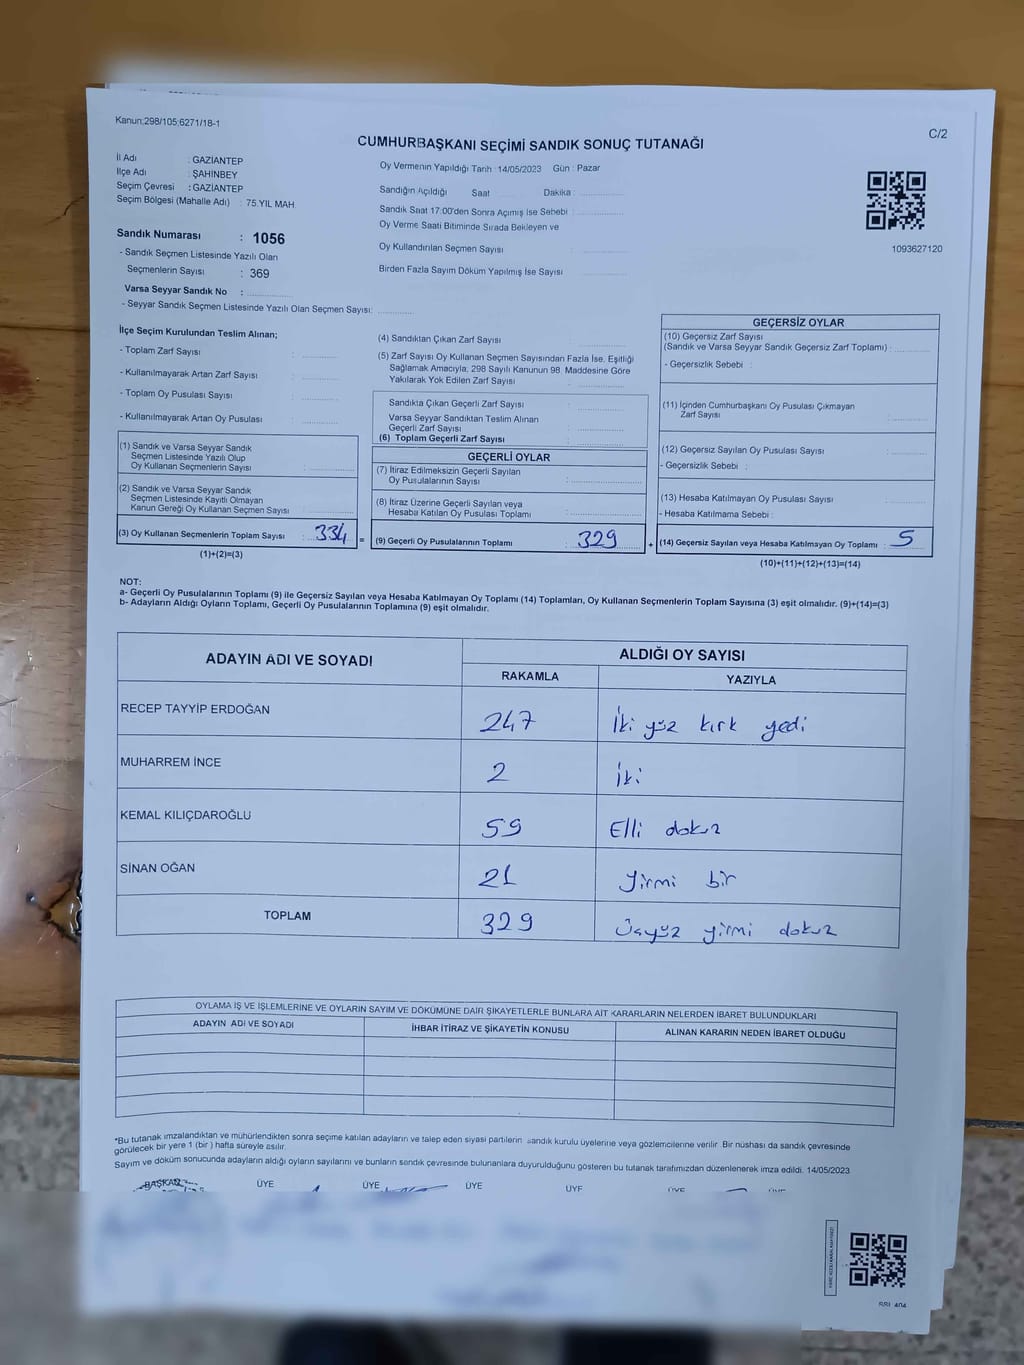 Kanun:298/105;6271/18-1
C/2
CUMHURBAŞKANI SEÇİMİ SANDIK SONUÇ TUTANAĞI
İl Adı : GAZİANTEP
İlçe Adı : ŞAHİNBEY
Seçim Çevresi : GAZİANTEP
Seçim Bölgesi (Mahalle Adı) : 75.YIL MAH.
Oy Vermenin Yapıldığı Tarih :14/05/2023 Gün : Pazar
Sandığın Açıldığı Saat Dakika :
Sandık Saat 17:00'den Sonra Açımış İse Sebebi :
Oy Verme Saati Bitiminde Sırada Bekleyen ve
Oy Kullandırılan Seçmen Sayısı :
Birden Fazla Sayım Döküm Yapılmış İse Sayısı
1093627120
Sandık Numarası : 1056
- Sandık Seçmen Listesinde Yazılı Olan
Seçmenlerin Sayısı : 369
Varsa Seyyar Sandık No :
- Seyyar Sandık Seçmen Listesinde Yazılı Olan Seçmen Sayısı:
İlçe Seçim Kurulundan Teslim Alınan;
- Toplam Zarf Sayısı :
- Kullanılmayarak Artan Zarf Sayısı :
- Toplam Oy Pusulası Sayısı :
- Kullanılmayarak Artan Oy Pusulası :
(1) Sandık ve Varsa Seyyar Sandık
Seçmen Listesinde Yazılı Olup
Oy Kullanan Seçmenlerin Sayısı :
(2) Sandık ve Varsa Seyyar Sandık
Seçmen Listesinde Kayıtlı Olmayan
Kanun Gereği Oy Kullanan Seçmen Sayısı :
(3) Oy Kullanan Seçmenlerin Toplam Sayısı : 334 =
(1)+(2)=(3)
(4) Sandıktan Çıkan Zarf Sayısı :
(5) Zarf Sayısı Oy Kullanan Seçmen Sayısından Fazla İse, Eşitliği
Sağlamak Amacıyla, 298 Sayılı Kanunun 98. Maddesine Göre
Yakılarak Yok Edilen Zarf Sayısı :
Sandıkta Çıkan Geçerli Zarf Sayısı :
Varsa Seyyar Sandıktan Teslim Alınan
Geçerli Zarf Sayısı :
(6) Toplam Geçerli Zarf Sayısı :
GEÇERLİ OYLAR
(7) İtiraz Edilmeksizin Geçerli Sayılan
Oy Pusulalarının Sayısı :
(8) İtiraz Üzerine Geçerli Sayılan veya
Hesaba Katılan Oy Pusulası Toplamı :
(9) Geçerli Oy Pusulalarının Toplamı : 329 +
GEÇERSİZ OYLAR
(10) Geçersiz Zarf Sayısı
(Sandık ve Varsa Seyyar Sandık Geçersiz Zarf Toplamı) :
- Geçersizlik Sebebi :
(11) İçinden Cumhurbaşkanı Oy Pusulası Çıkmayan
Zarf Sayısı :
(12) Geçersiz Sayılan Oy Pusulası Sayısı :
- Geçersizlik Sebebi :
(13) Hesaba Katılmayan Oy Pusulası Sayısı :
- Hesaba Katılmama Sebebi :
(14) Geçersiz Sayılan veya Hesaba Katılmayan Oy Toplamı : 5
(10)+(11)+(12)+(13)=(14)
NOT:
a- Geçerli Oy Pusulalarının Toplamı (9) ile Geçersiz Sayılan veya Hesaba Katılmayan Oy Toplamı (14) Toplamları, Oy Kullanan Seçmenlerin Toplam Sayısına (3) eşit olmalıdır. (9)+(14)=(3)
b- Adayların Aldığı Oyların Toplamı, Geçerli Oy Pusulalarının Toplamına (9) eşit olmalıdır.
ADAYIN ADI VE SOYADI ALDIĞI OY SAYISI
RAKAMLA YAZIYLA
RECEP TAYYİP ERDOĞAN 247 İki yüz kırk yedi
MUHARREM İNCE 2 İki
KEMAL KILIÇDAROĞLU 59 Elli dokuz
SİNAN OĞAN 21 Yirmi bir
TOPLAM 329 Üçyüz yirmi dokuz
OYLAMA İŞ VE İŞLEMLERİNE VE OYLARIN SAYIM VE DÖKÜMÜNE DAİR ŞİKAYETLERLE BUNLARA AİT KARARLARIN NELERDEN İBARET BULUNDUKLARI
ADAYIN ADI VE SOYADI İHBAR İTİRAZ VE ŞİKAYETİN KONUSU ALINAN KARARIN NEDEN İBARET OLDUĞU
*Bu tutanak imzalandıktan ve mühürlendikten sonra seçime katılan adayların ve talep eden siyasi partilerin sandık kurulu üyelerine veya gözlemcilerine verilir. Bir nüshası da sandık çevresinde
görülecek bir yere 1 (bir ) hafta süreyle asılır.
Sayım ve döküm sonucunda adayların aldığı oyların sayılarını ve bunların sandık çevresinde bulunanlara duyurulduğunu gösteren bu tutanak tarafımızdan düzenlenerek imza edildi. 14/05/2023
BAŞKAN ÜYE ÜYE ÜYE ÜYE ÜYE ÜYE